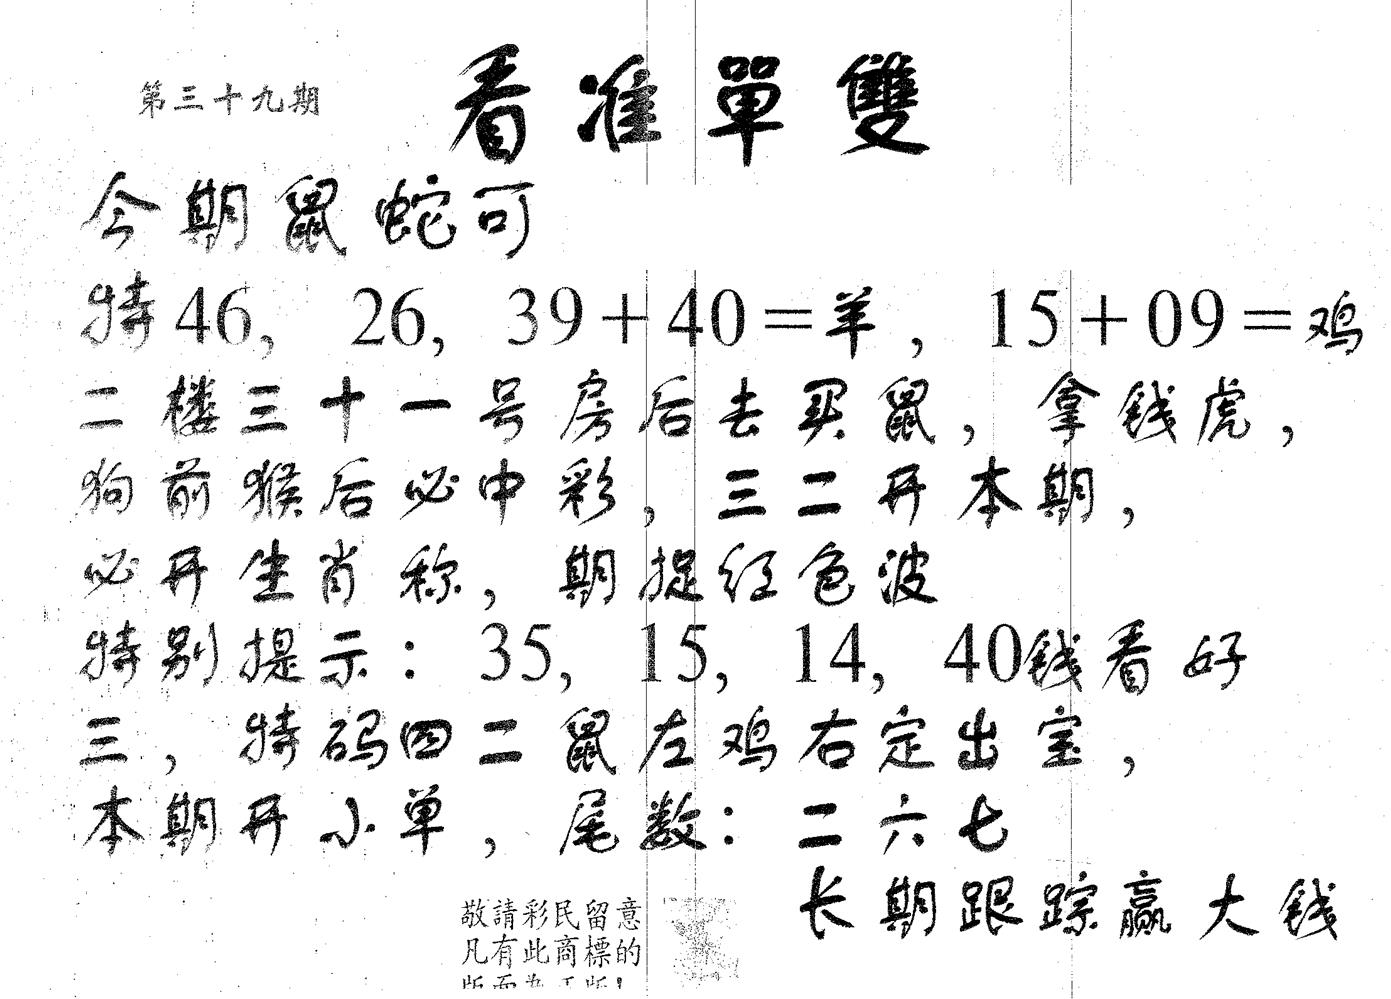 第三十九期
看准單雙
今期鼠蛇可
特46, 26, 39+40=羊, 15+09=鸡
二楼三十一号房后去买鼠, 拿钱虎,
狗前猴后必中彩, 三二开本期,
必开生肖称, 期捉红色波
特别提示: 35, 15, 14, 40钱看好
三, 特码四二鼠左鸡右定出宝,
本期开小单, 尾数: 二六七
长期跟踪赢大钱
敬請彩民留意
凡有此商標的